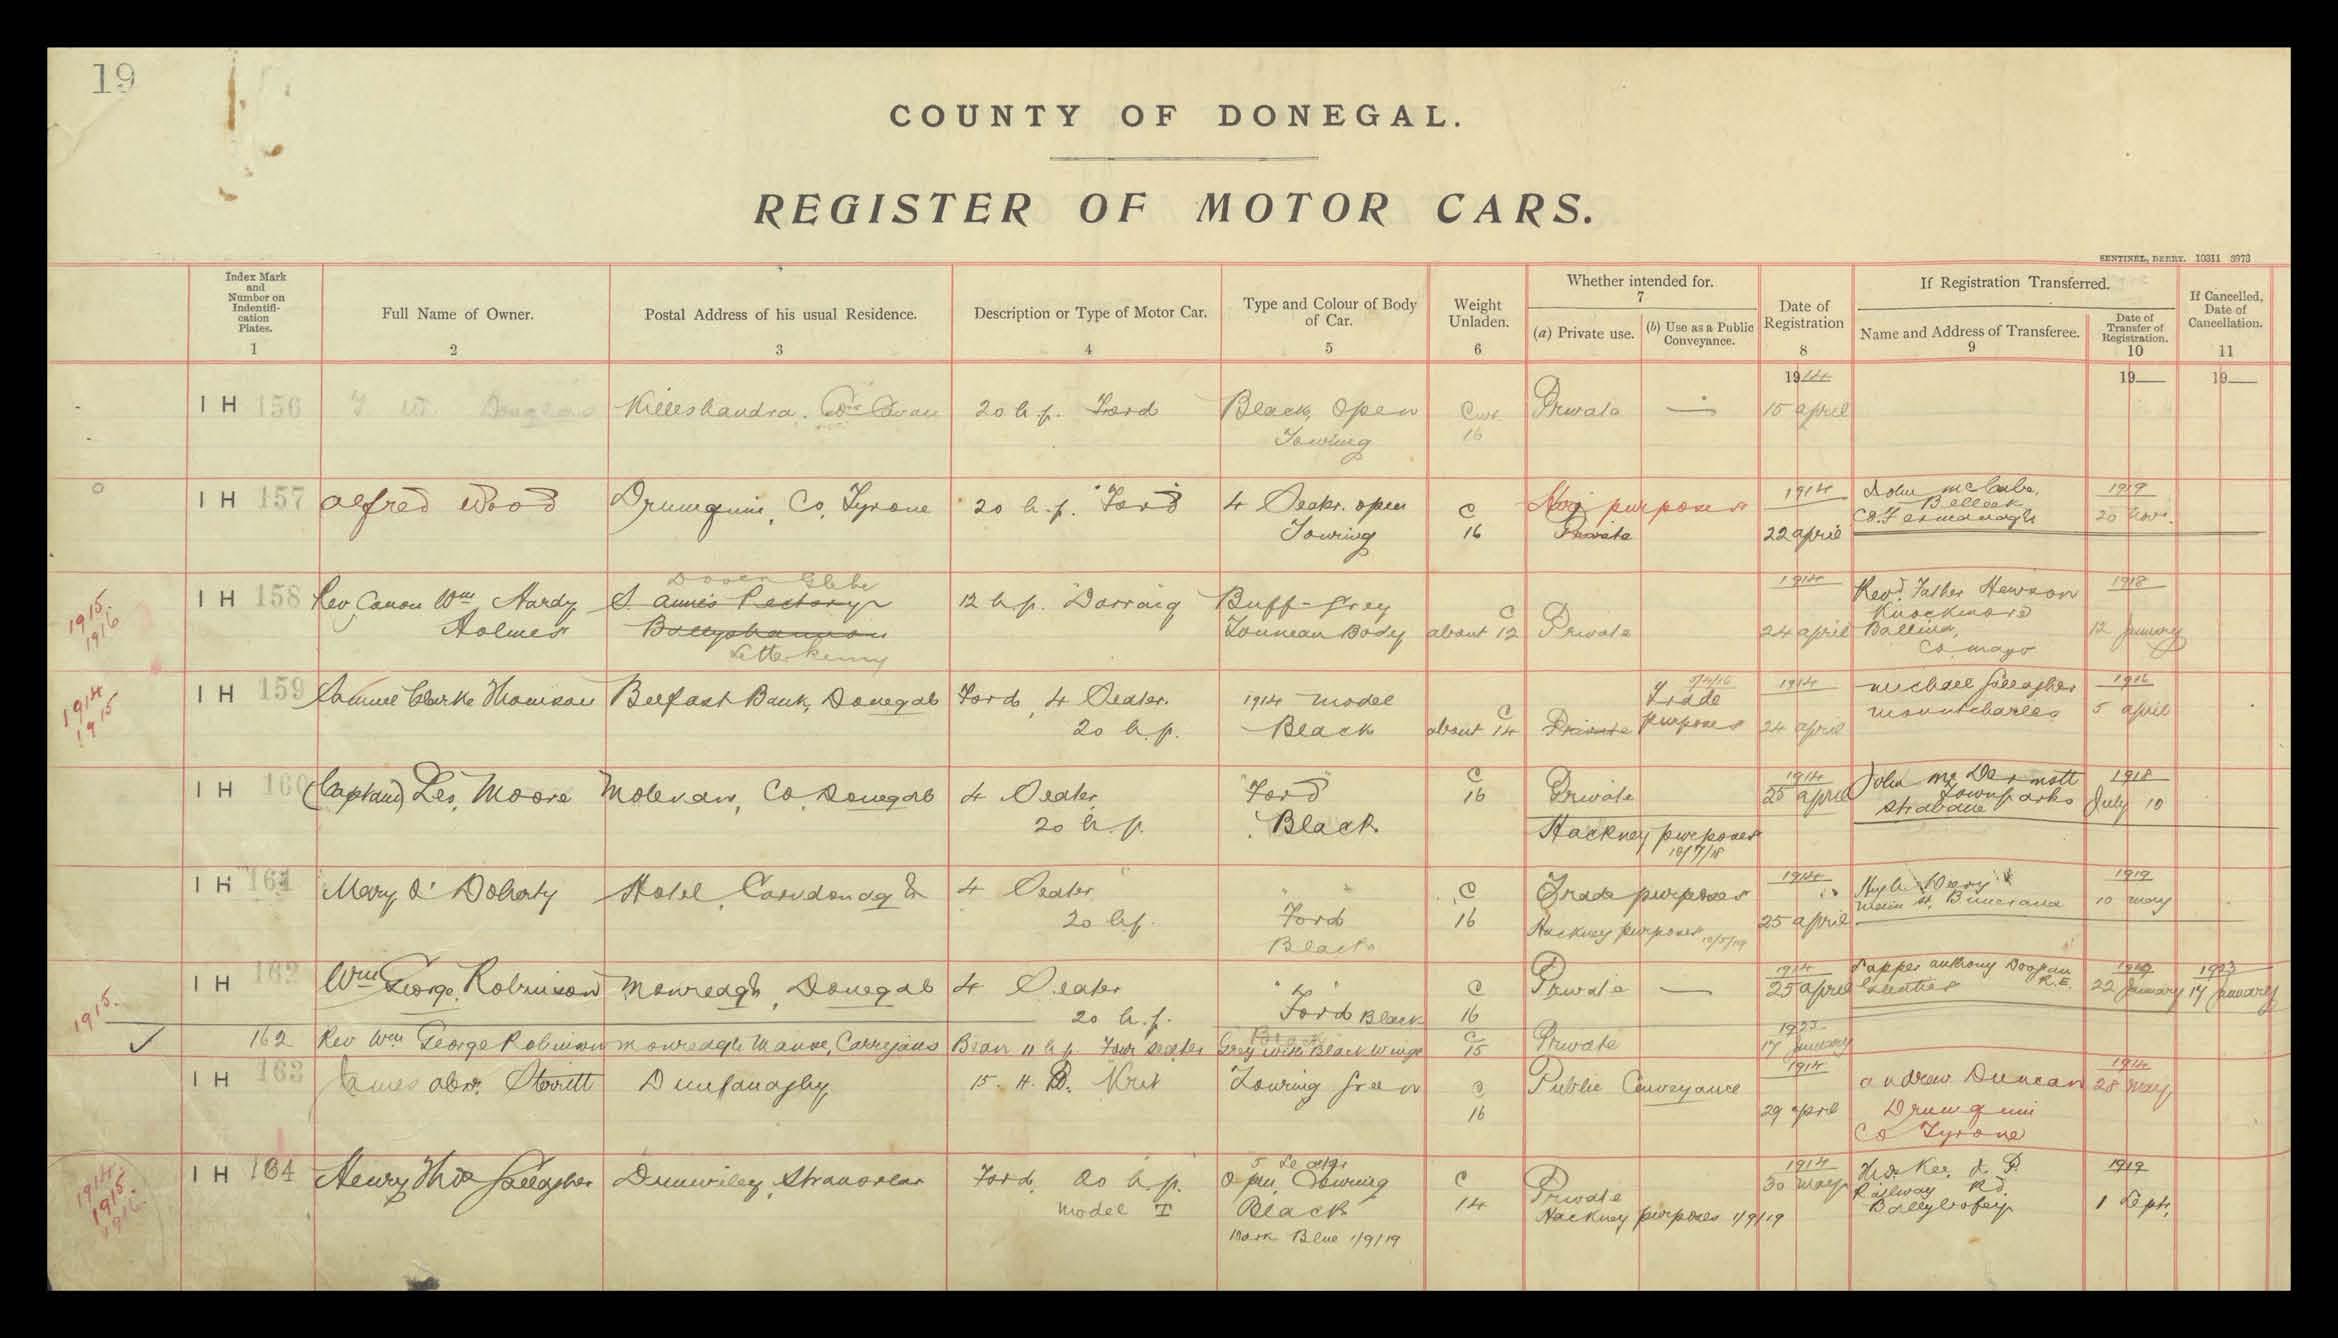 19
COUNTY OF DONEGAL.
REGISTER OF MOTOR CARS.
SENTINEL, DERRY. 10311 3973
Index Mark and Number on Indentifi- cation Plates. 1
Full Name of Owner. 2
Postal Address of his usual Residence. 3
Description or Type of Motor Car. 4
Type and Colour of Body of Car. 5
Weight Unladen. 6
Whether intended for. 7
(a) Private use.
(b) Use as a Public Conveyance.
Date of Registration 8
If Registration Transferred.
Name and Address of Transferee. 9
Date of Transfer of Registration. 10
If Cancelled, Date of Cancellation. 11
1914 19 19
IH 156 W. Douglas Killeshandra. Co Cavan 20 h.p. Ford Black, Open Cwt Private — 15 april
Touring 16
IH 157 Alfred Wood Drumquin, Co, Tyrone 20 h.p. "Ford" 4 Seater. open C purposes 1914 John McCabe, 1919
Touring 16 Private 22 april Belleek Co. Fermanagh 20 Novr.
1915
1916
IH 158 Rev Canon Wm Hardy Holmes
Glebe
S. Anne's Rectory
Ballyshannon
Letterkenny
12 h.p. Darracq Buff-Grey
Tonneau Body
C
about 12
Private
1914
24 april
Revd. Father Hewson
Knockmore
Ballina,
Co mayo
1918
12 January
1914
1915
IH 159 Samuel Clarke Thomison Belfast Bank, Donegal Ford, 4 Seater.
20 h.p.
1914 model
Black
C
about 14
Private
5/4/16
Trade
purposes
1914
24 april
michael Gallagher
mountcharles
1916
5 april
IH 160 (Captain) Moore Molevan, Co, Donegal 4 Seater.
20 h.p.
"Ford"
Black
C
16
Private
Hackney purposes
10/7/18
1914
25 april
John McDermott
Townparks
Strabane
1918
July 10
IH 161 Mary O'Doherty Hotel, Carndonagh 4 Seater
20 h.p.
Ford
Black
C
16
Trade purposes
Hackney purposes 10/5/19
1914
25 april
Hugh
main St, Buncrana
1919
10 may
1915.
IH 162 Wm George Robinson Monreagh, Donegal 4 Seater
20 h.p.
Ford Black
C
16
Private —
1914
25 april
Sapper anthony Doogan
R.E.
22 January
1923
17 January
✓
162 Rev Wm George Robinson monreagh Manse, Carrigans Bean 11 h.p. Four Seater Grey with Black Wings
C
15
Private
1923
17 January
IH 163 James Sterritt Dunfanaghy 15. H. P. Krit Touring green
C
16
Public Conveyance
1914
29 april
andrew Duncan
Drumquin
Co Tyrone
1914
28 may
1914
1915
1916
IH 164 Henry Thos Gallagher Drumriley, Stranorlar Ford, 20 h.p.
model T
5 Seater
Open Touring
Black
Dark Blue 1/9/19
C
14
Private
Hackney purposes 1/9/19
1914
30 may
Kee J. P.
Railway Rd.
Ballybofey
1919
1 Sept.